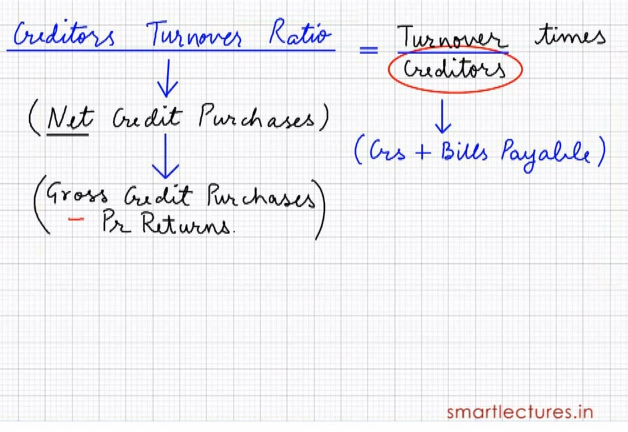 Creditors Turnover Ratio = Turnover times
Creditors
(Net Credit Purchases)
(Crs + Bills Payable)
(Gross Credit Purchases
- Pr Returns.)
smartlectures.in